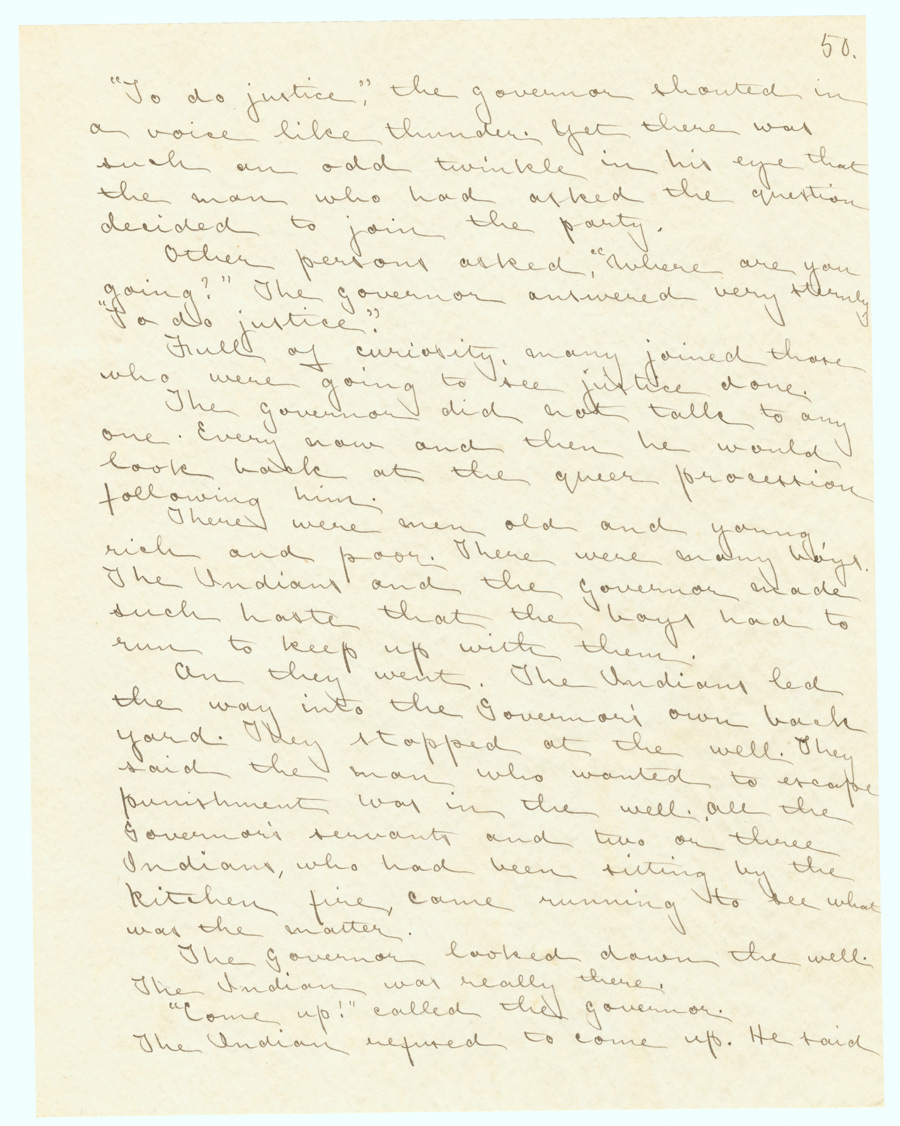 50.
"To do justice," the governor shouted in
a voice like thunder. Yet there was
such an odd twinkle in his eye that
the man who had asked the question
decided to join the party.
Other persons asked, "Where are you
going?" The governor answered very sternly
"To do justice".
Full of curiosity, many joined those
who were going to see justice done.
The governor did not talk to any
one. Every now and then he would
look back at the queer procession
following him.
There were men old and young
rich and poor. There were many boys.
The Indians and the governor made
such haste that the boys had to
run to keep up with them.
On they went. The Indians led
the way into the Governor's own back
yard. They stopped at the well. They
said the man who wanted to escape
punishment was in the well. All the
Governor's servants and two or three
Indians, who had been sitting by the
kitchen fire, came running to see what
was the matter.
The Governor looked down the well.
The Indian was really there.
"Come up!" called the governor.
The Indian refused to come up. He said